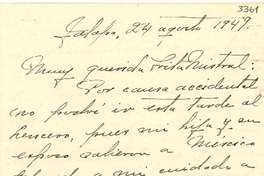 3361
Jalapa, 24 agosto 1949.
Muy querida Srita Mistral:
Por causa accidental
no podré ir esta tarde al
pues mi hija y su
esposo salieron a México
a mi cuidado a